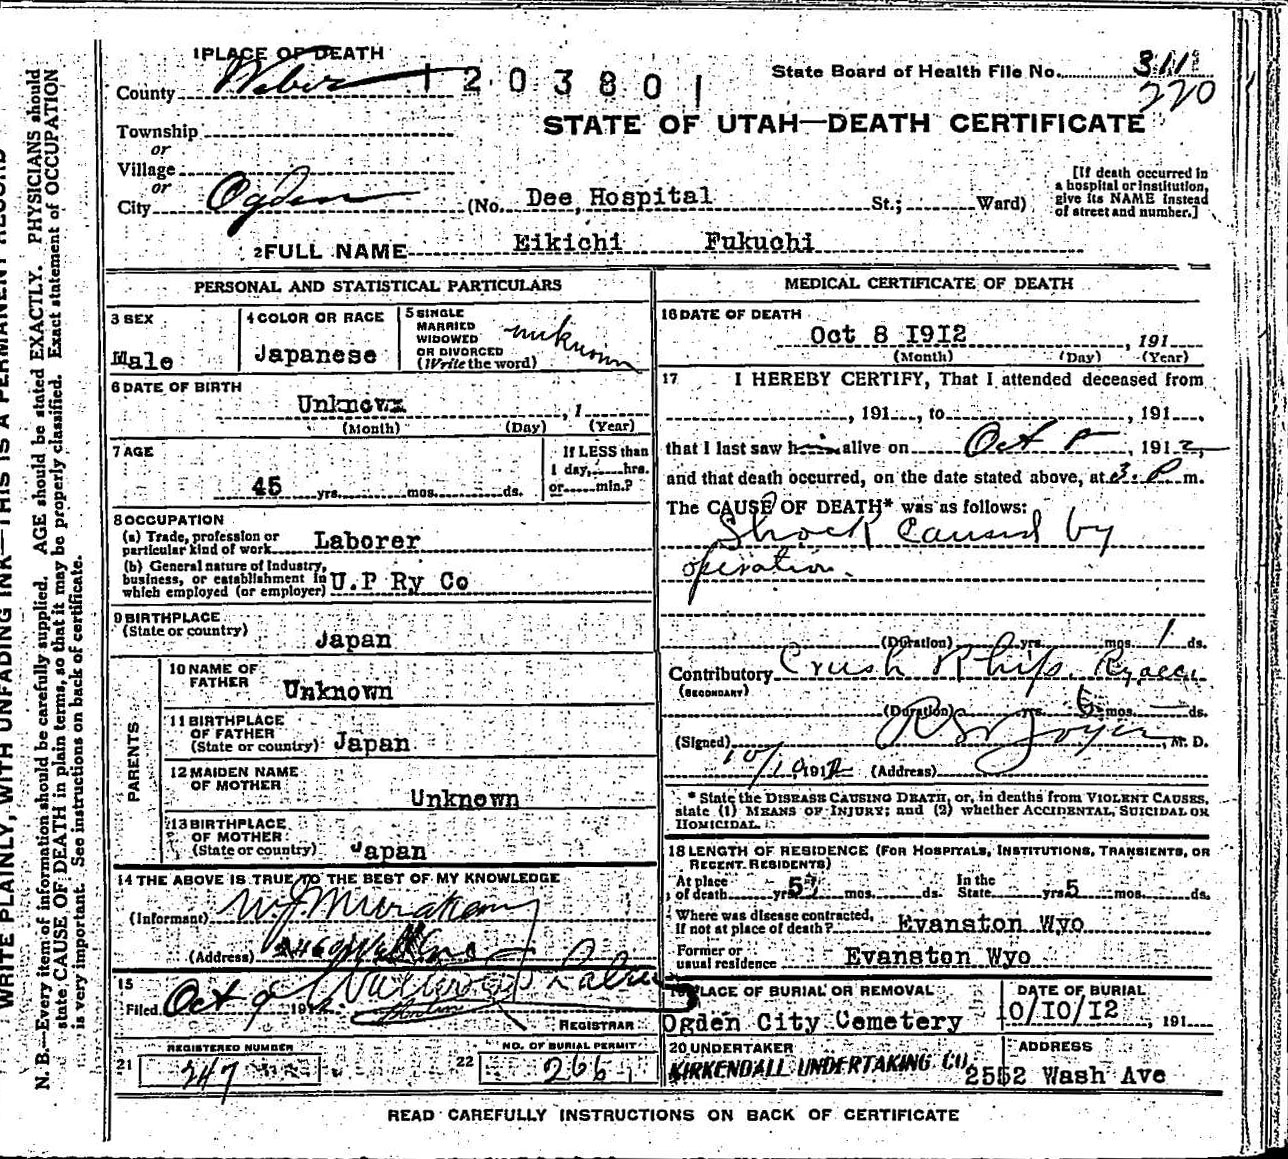 1 PLACE OF DEATH
County Weber
1203801
State Board of Health File No. 311
220
STATE OF UTAH—DEATH CERTIFICATE
Township
or
Village
or
City Ogden (No. Dee Hospital St.; Ward)
[If death occurred in
a hospital or institution,
give its NAME instead
of street and number.]
2 FULL NAME Eikichi Fukuchi
PERSONAL AND STATISTICAL PARTICULARS
3 SEX
Male
4 COLOR OR RACE
Japanese
5 SINGLE
MARRIED
WIDOWED
OR DIVORCED
(Write the word)
unknown
6 DATE OF BIRTH
Unknown , 1
(Month) (Day) (Year)
7 AGE
45 yrs. mos. ds.
If LESS than
1 day, hrs.
or min.?
8 OCCUPATION
(a) Trade, profession or
particular kind of work Laborer
(b) General nature of Industry,
business, or establishment in
which employed (or employer) U.P Ry Co
9 BIRTHPLACE
(State or country)
Japan
PARENTS
10 NAME OF
FATHER
Unknown
11 BIRTHPLACE
OF FATHER
(State or country) Japan
12 MAIDEN NAME
OF MOTHER
Unknown
13 BIRTHPLACE
OF MOTHER
(State or country) Japan
14 THE ABOVE IS TRUE TO THE BEST OF MY KNOWLEDGE
(Informant)
(Address)
15
Filed Oct 9 191
REGISTRAR
REGISTERED NUMBER
21 247
NO. OF BURIAL PERMIT
22 266
MEDICAL CERTIFICATE OF DEATH
16 DATE OF DEATH
Oct 8 1912 , 191
(Month) (Day) (Year)
17 I HEREBY CERTIFY, That I attended deceased from
, 191 , to , 191 ,
that I last saw him alive on Oct 8 , 1912,
and that death occurred, on the date stated above, at 3. P m.
The CAUSE OF DEATH* was as follows:
Shock caused by
operation.
(Duration) yrs. mos. 1 ds.
Contributory Crush
(SECONDARY)
(Duration) yrs. mos. ds.
(Signed) , M. D.
10/10 1912 (Address)
* State the DISEASE CAUSING DEATH, or, in deaths from VIOLENT CAUSES,
state (1) MEANS OF INJURY; and (2) whether ACCIDENTAL, SUICIDAL OR
HOMICIDAL.
18 LENGTH OF RESIDENCE (FOR HOSPITALS, INSTITUTIONS, TRANSIENTS, OR
RECENT RESIDENTS)
At place
of death yrs. mos. ds.
In the
State yrs 5 mos. ds.
Where was disease contracted,
If not at place of death? Evanston Wyo
Former or
usual residence Evanston Wyo
19 PLACE OF BURIAL OR REMOVAL
Ogden City Cemetery
DATE OF BURIAL
10/10/12 , 191
20 UNDERTAKER
KIRKENDALL UNDERTAKING CO.
ADDRESS
2552 Wash Ave
READ CAREFULLY INSTRUCTIONS ON BACK OF CERTIFICATE
WRITE PLAINLY, WITH UNFADING INK—THIS IS A PERMANENT RECORD
N. B.—Every item of information should be carefully supplied. AGE should be stated EXACTLY. PHYSICIANS should
state CAUSE OF DEATH in plain terms, so that it may be properly classified. Exact statement of OCCUPATION
is very important. See instructions on back of certificate.